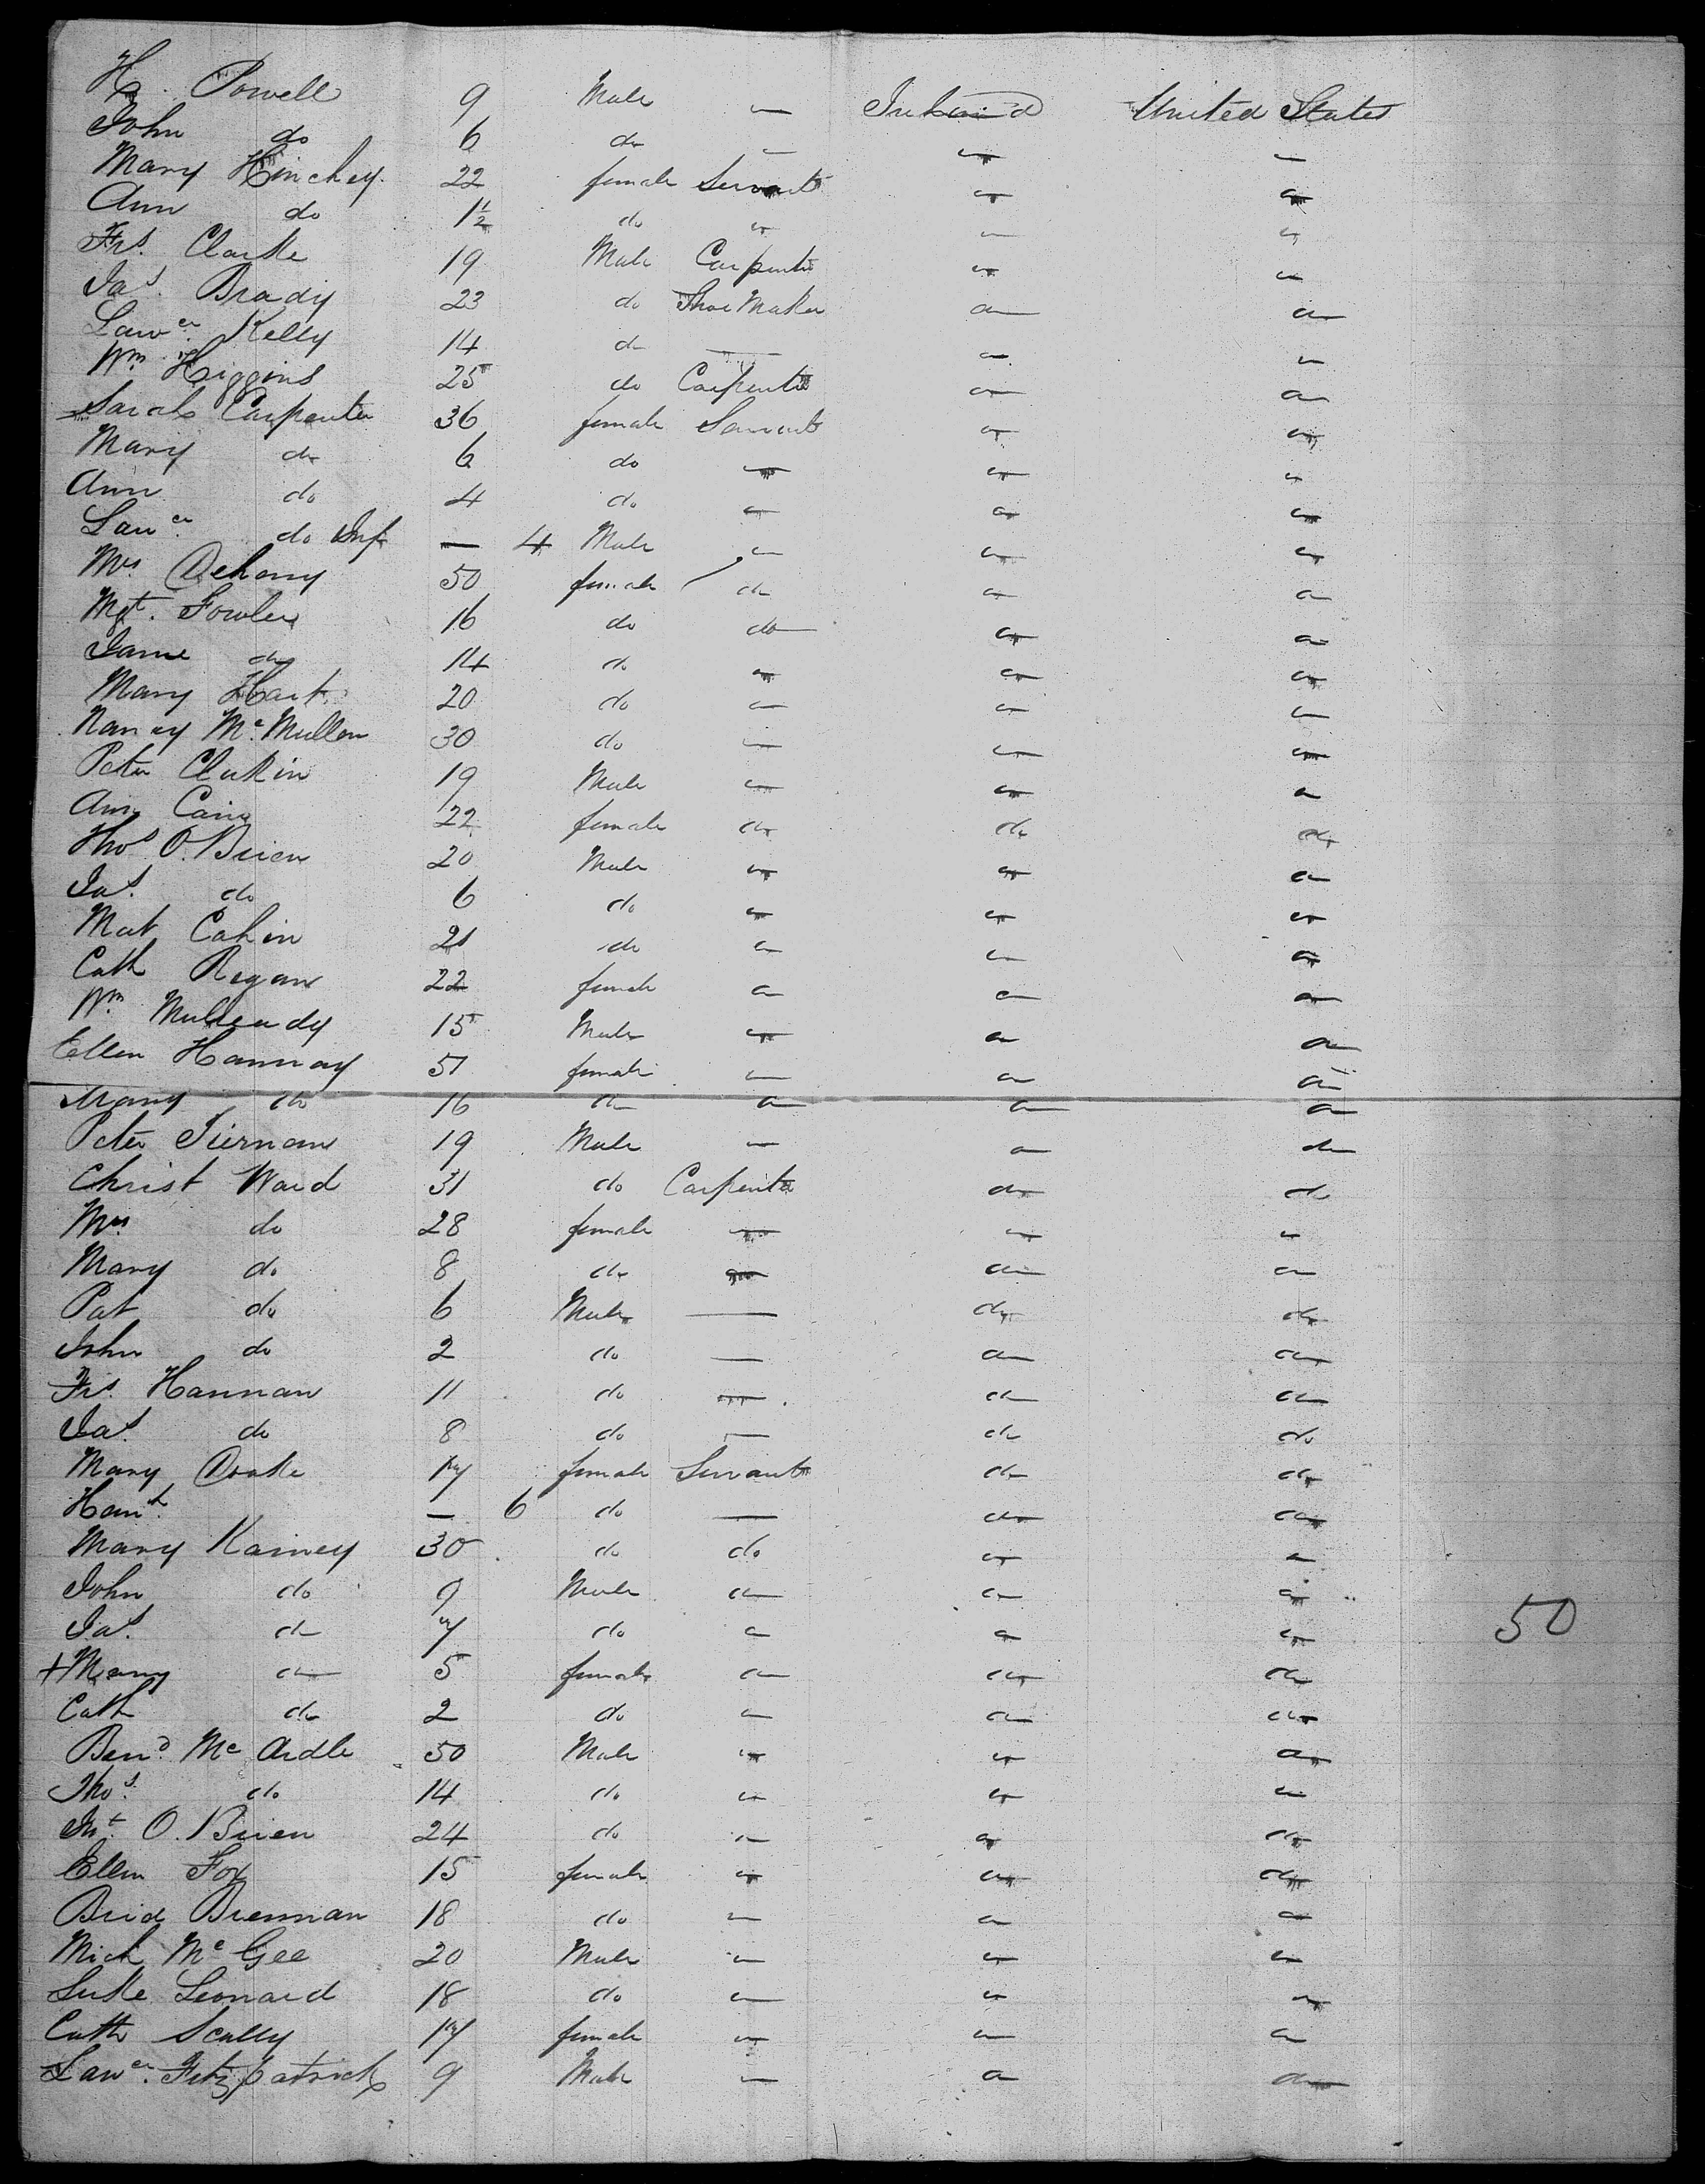 H. Powell 9 Male " Ireland United States
John do 6 do " " "
Mary Hinchey. 22 female Servant " "
Ann do 1½ do " " "
Frs. Clarke 19 Male Carpenter " "
Jas. Brady 23 do Shoe Maker " "
Lawce. Kelly 14 do — " "
Wm. Higgins 25 do Carpenter " "
Sarah Carpenter 36 female Servant " "
Mary do 6 do " " "
Ann do 4 do " " "
Lawce. do Inf — 4 Male " " "
Mrs. Dehany 50 female do " "
Mgt. Fowler 16 do do " "
Jane do 14 do " " "
Mary Hart 20 do " " "
Nancy Mc.Mullen 30 do " " "
Peter Clukin 19 Male " " "
Ann Cain 22 female do do do
Thos O.Brien 20 Male " " "
Jas. do 6 do " " "
Mat Cahin 21 do " " "
Cath Regan 22 female " " "
Wm. Mulready 15 Male " " "
Ellen Hannay 51 female " " "
Mary do 16 do " " "
Peter Tiernan 19 Male " " do
Christ Ward 31 do Carpenter do do
Mrs. do 28 female " " "
Mary do 8 do " " "
Pat do 6 Male — do do
John do 2 do — " "
Frs. Hannan 11 do — do do
Jas. do 8 do — do do
Mary Doake 17 female Servant do do
Hant. — 6 do — do do
Mary Kainey 30 do do " "
John do 9 Male " " "
Jas. do 7 do " " " 50
+Mary do 5 female " " do
Cath do 2 do " " "
Bend. Mc Ardle 50 Male " " "
Thos. do 14 do " " "
O.Brien 24 do " " do
Ellen Fox 15 female " " do
Brid Brennan 18 do " " "
Mich Mc Gee 20 Male " " "
Luke Leonard 18 do " " "
Cath Scally 17 female " " "
Lawce. Fitzpatrick 9 Male " " do